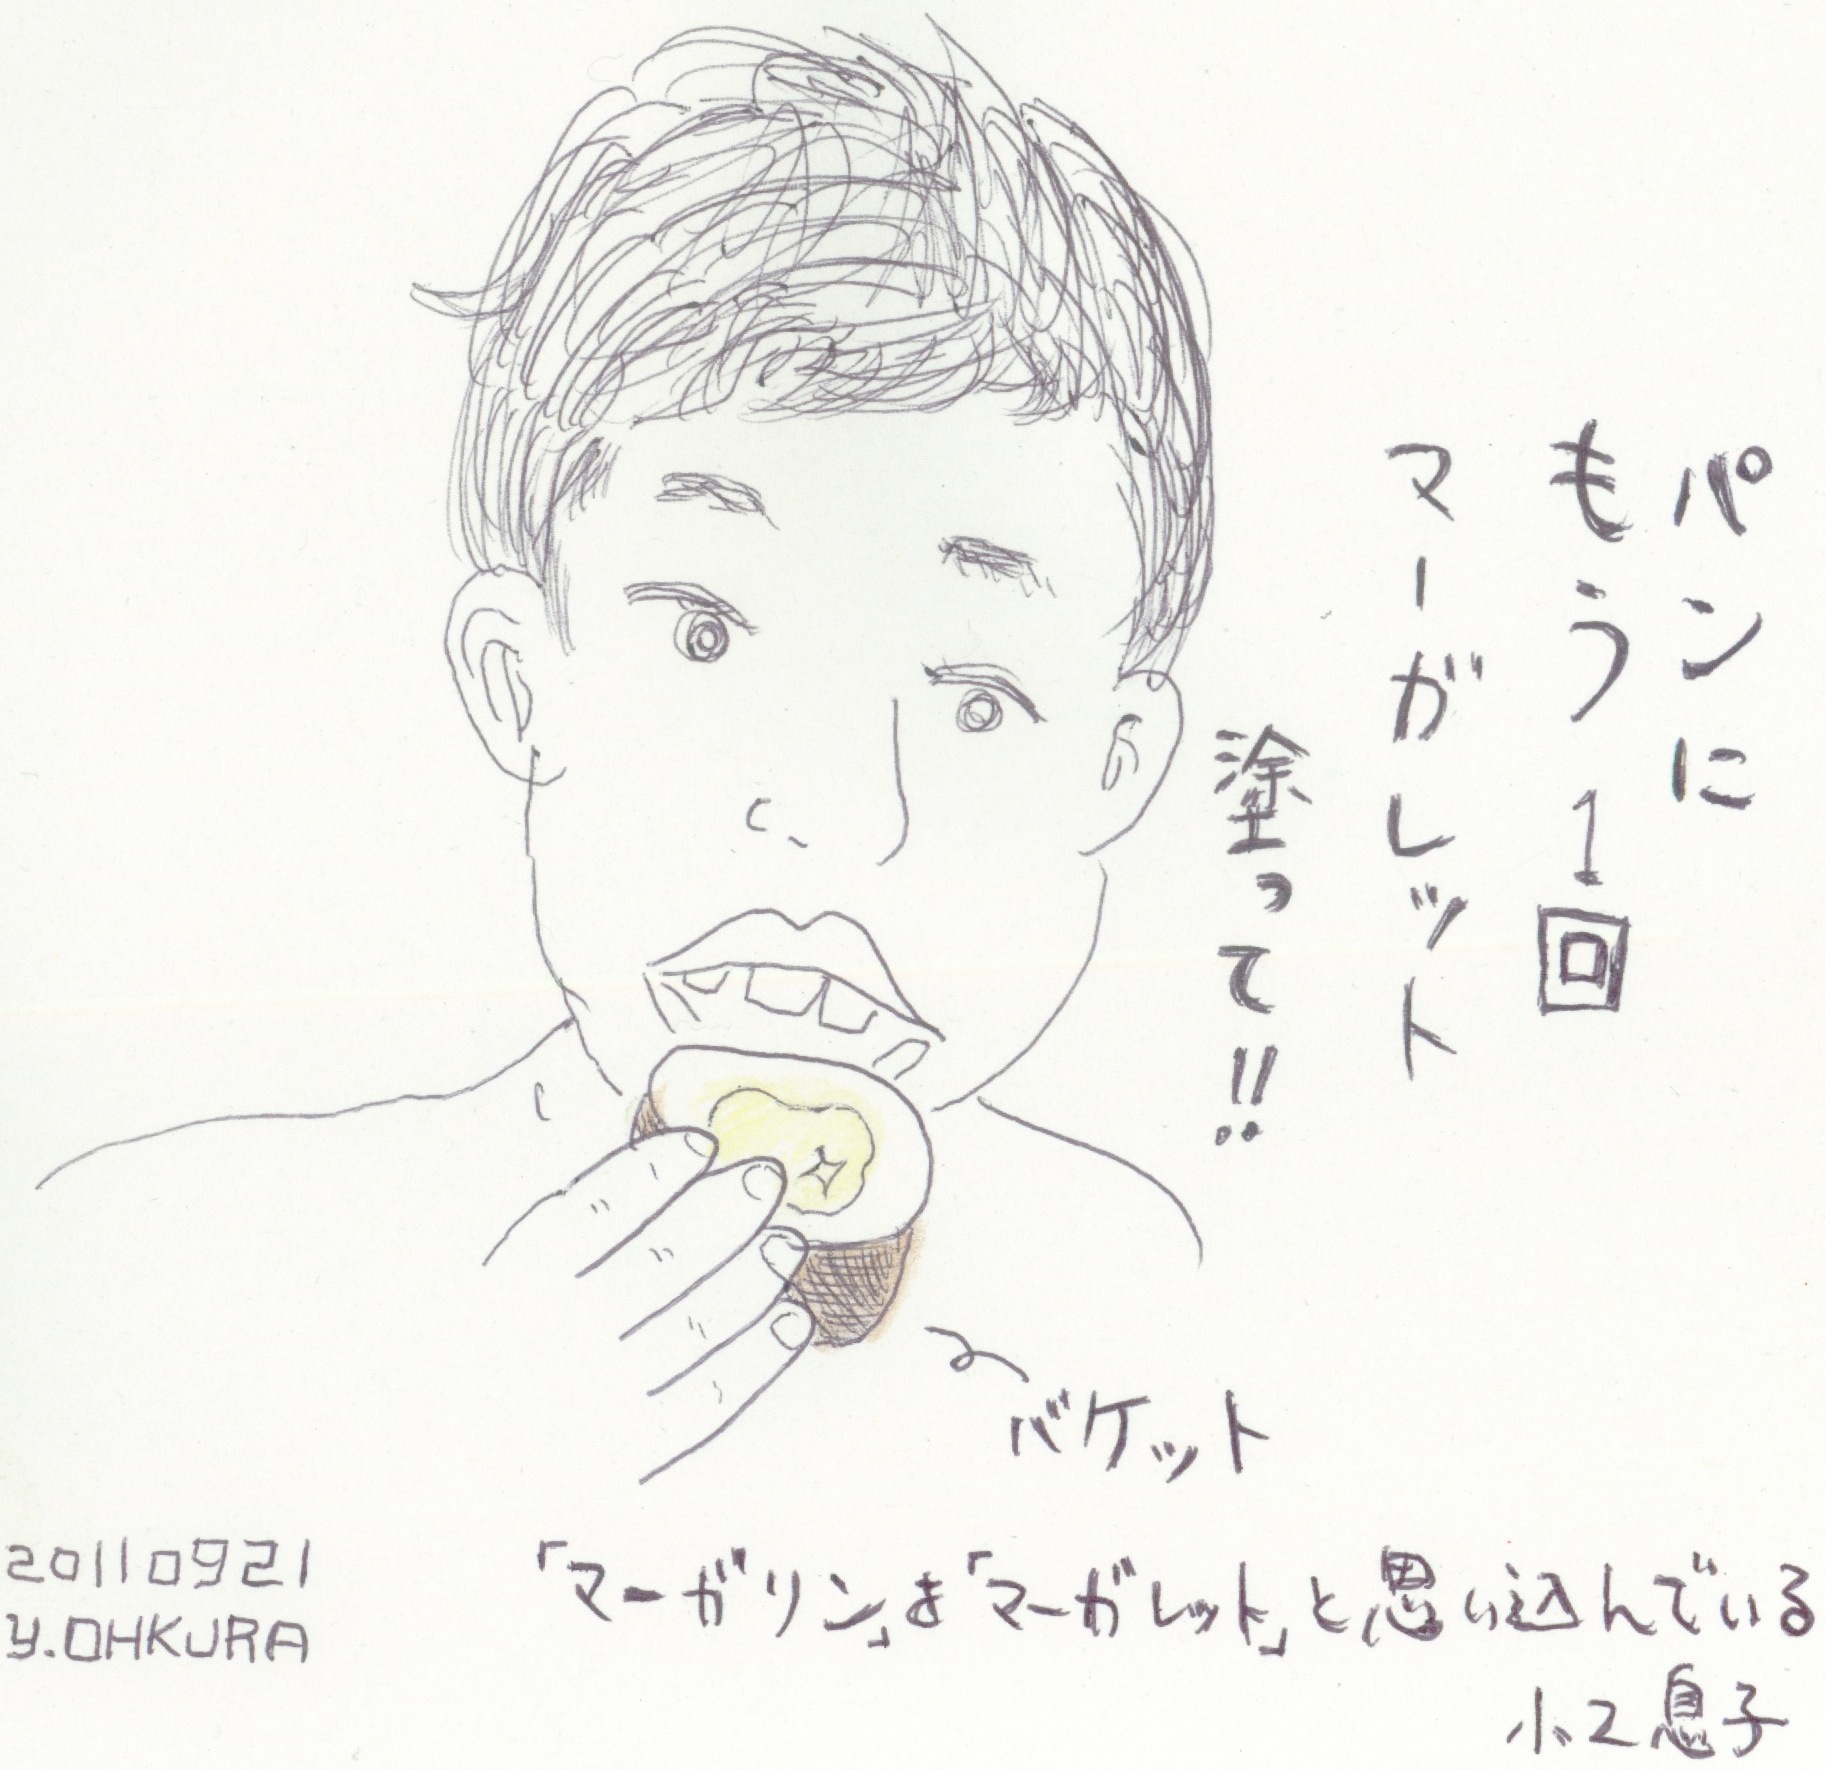 パンに
もう1回
マーガレット
塗って!!
バケット
「マーガリン」を「マーガレット」と思い込んでいる
小2息子
20110921
Y.OHKURA